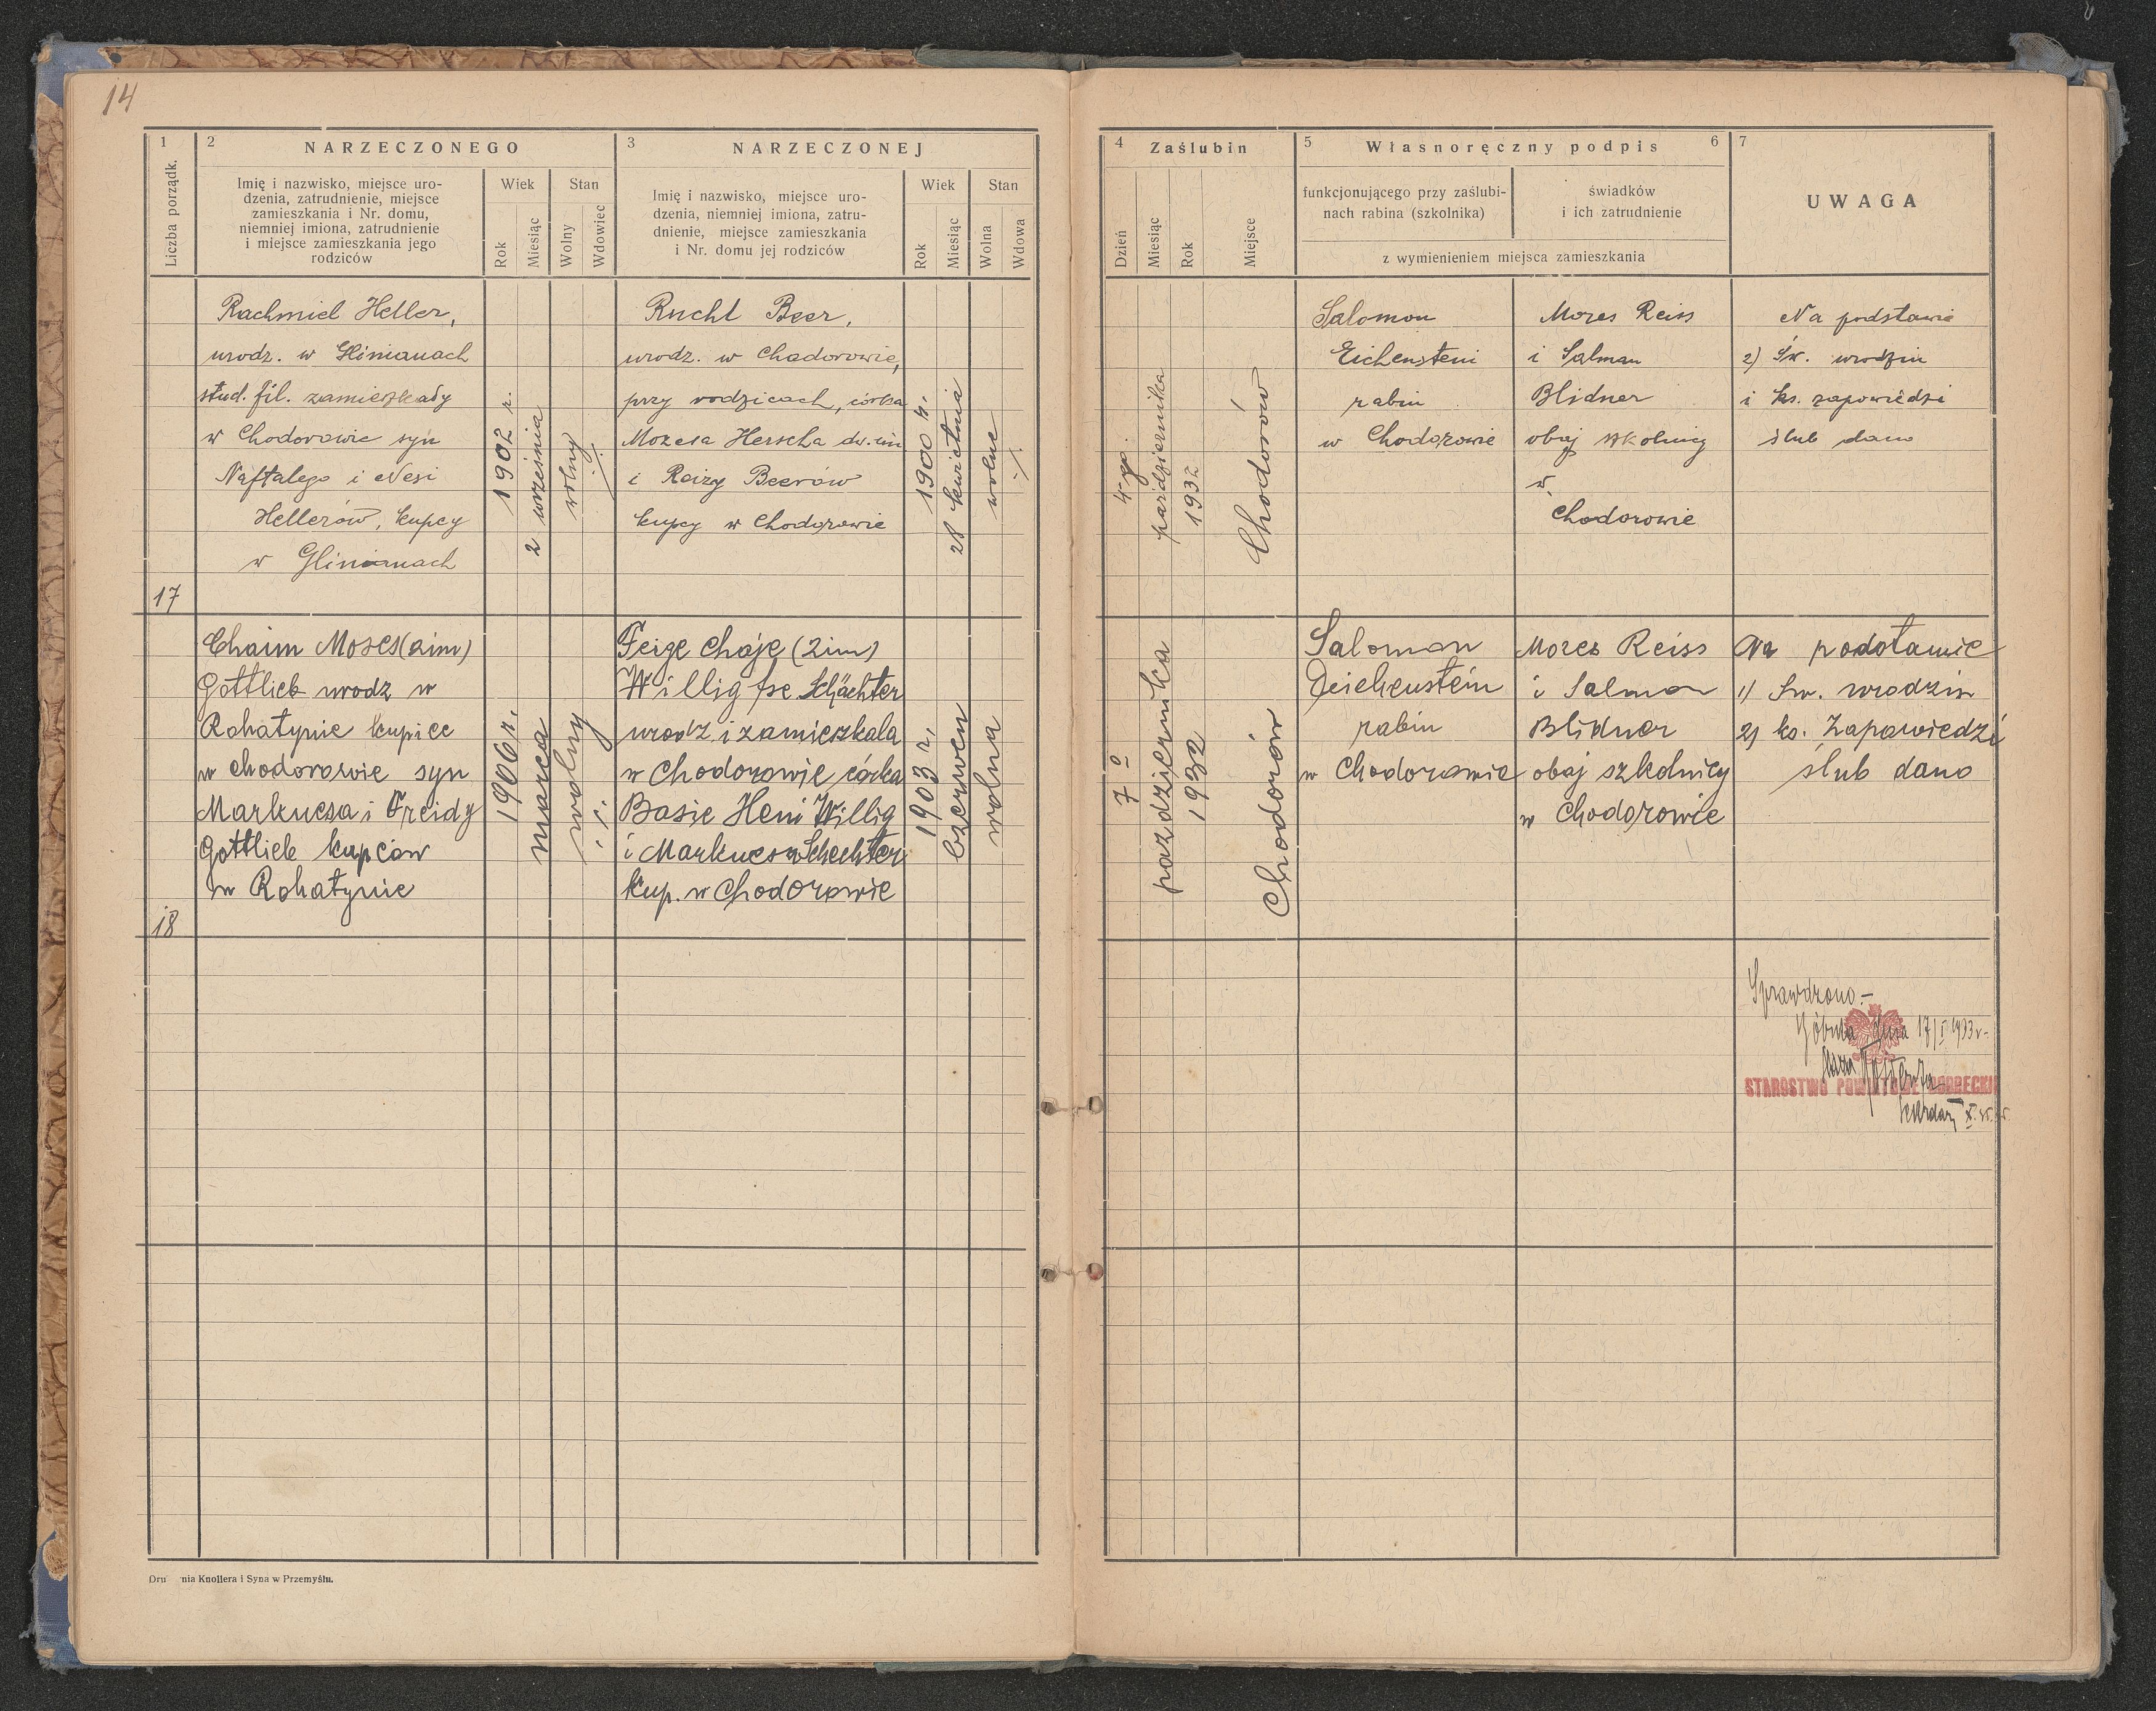 14
1
2
NARZECZONEGO
3
NARZECZONEJ
Liczba porządk.
Imię i nazwisko, miejsce uro-
dzenia, zatrudnienie, miejsce
zamieszkania i Nr. domu,
niemniej imiona, zatrudnienie
i miejsce zamieszkania jego
rodziców
Wiek
Rok
Miesiąc
Stan
Wolny
Wdowiec
Imię i nazwisko, miejsce uro-
dzenia, niemniej imiona, zatru-
dnienie, miejsce zamieszkania
i Nr. domu jej rodziców
Wiek
Rok
Miesiąc
Stan
Wolna
Wdowa
17
Rachmiel Heller,
urodz. w Glinianach
stud. fil. zamieszkały
w Chodorowie syn
Naftalego i Nesi
Hellerów, kupcy
w Glinianach
1902 r.
2 września
wolny
Rucht Beer,
urodz. w Chodorowie,
przy rodzicach, córka
Mozesa Herscha dw. im
i Reizy Beerów
kupcy w Chodorowie
1900 r.
28 kwietnia
wolna
18
Chaim Moses (2im)
Gottlieb urodz w
Rohatynie kupiec
w Chodorowie syn
Markusa i Freidy
Gottlieb kupców
w Rohatynie
1906 r.
marca
wolny
Feige Chaje (2im)
Willig fse Schächter
urodz. i zamieszkala
w Chodorowie córka
Basie Heni Willig
i Markusa Schechter
kup. w Chodorowie
1903 r.
czerwca
wolna
Drukarnia Knollera i Syna w Przemyślu.
4
Zaślubin
5
Własnoręczny podpis
6
7
Dzień
Miesiąc
Rok
Miejsce
funkcjonującego przy zaślubi-
nach rabina (szkolnika)
świadków
i ich zatrudnienie
z wymienieniem miejsca zamieszkania
UWAGA
4-go
października
1932
Chodorów
Salomon
Eichenstein
rabin
w Chodorowie
Mozes Reiss
i Salman
Blidner
obaj szkolnicy
w
Chodorowie
Na podstawie
2) Św. urodzin
i ks. zapowiedzi
ślub dano
7 o
pazdziernika
1932
Chodorów
Salomon
Eichenstein
rabin
w Chodorowie
Mozes Reiss
i Salman
Blidner
obaj szkolnicy
w Chodorowie
Na podstawie
1) Św. urodzin
2) ks. Zapowiedzi
ślub dano
Sprawdzono.-
Bóbrka dnia 17/I 1933 r.
STAROSTWO POWIATOWE BOBRECKIE